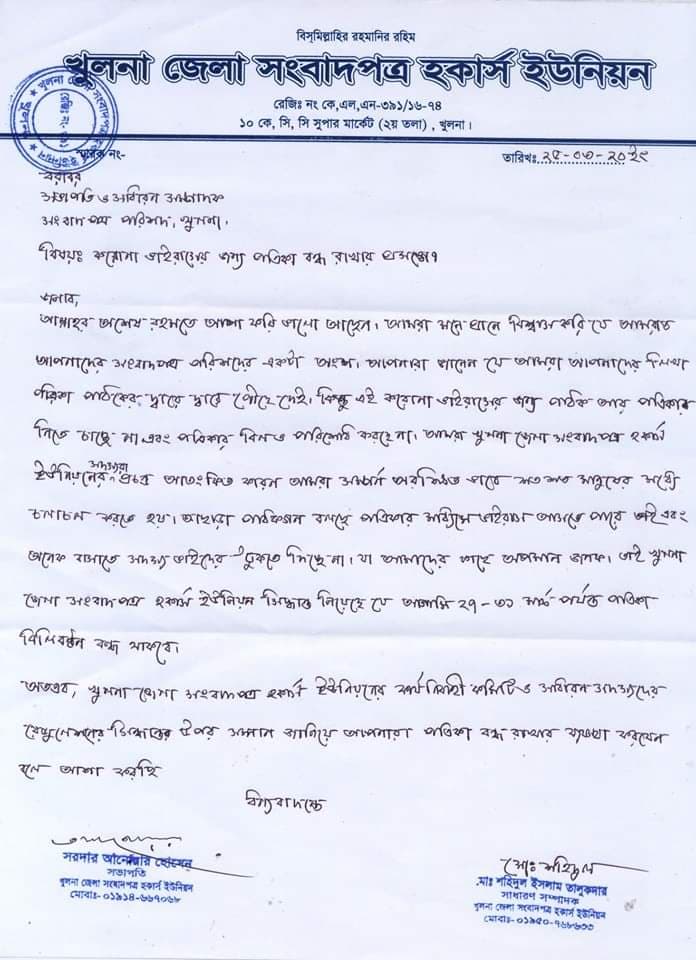 বিস্‌মিল্লাহির রহমানির রহিম
খুলনা জেলা সংবাদপত্র হকার্স ইউনিয়ন
রেজিঃ নং কে,এল,এন-৩৯১/১৬-৭৪
১০ কে, সি, সি সুপার মার্কেট (২য় তলা) , খুলনা ।
স্মারক নং-
তারিখঃ ২৫-০৩-২০২ইং
বরাবর
সভাপতি ও সাধারন সম্পাদক
সংবাদ পত্র পরিষদ, খুলনা,
বিষয়ঃ করোনা ভাইরাসের জন্য পত্রিকা বন্ধ রাখার প্রসঙ্গে।
জনাব,
আল্লাহর অশেষ রহমতে আশা করি ভালো আছেন। আমরা মনে প্রানে বিশ্বাস করি যে আমরাও
আপনাদের সংবাদপত্র পরিষদের একটা অংশ। আপনারা জানেন যে আমরা আপনাদের লিখা
পত্রিকা পাঠকের দ্বারে দ্বারে পৌছে দেই। কিন্তু এই করোনা ভাইরাসের জন্য পাঠক আর পত্রিকা
নিতে চাচ্ছে না এবং পত্রিকার বিলও পরিশোধ করছে না। আমরা খুলনা জেলা সংবাদপত্র হকার্স
ইউনিয়নের সদস্যরা প্রচন্ড আতংকিত কারন আমরা সম্পূর্ন অরক্ষিত ভাবে শত শত মানুষের মধ্যে
চলাচল করতে হয়। আছাড়া পাঠকগন বলছে পত্রিকার মাধ্যমে ভাইরাস আসতে পারে তাই এবং
অনেক বাসাতে সদস্য ভাইদের ঢুকতে দিচ্ছে না। যা আমাদের কাছে অপমান জনক। তাই খুলনা
জেলা সংবাদপত্র হকার্স ইউনিয়ন সিদ্ধান্ত নিয়েছে যে আগামি ২৭-৩১ মার্চ পর্যন্ত পত্রিকা
বিলিবন্টন বন্ধ থাকবে।
অতএব, খুলনা জেলা সংবাদপত্র হকার্স ইউনিয়নের কার্যনির্বাহী কমিটি ও সাধারন সদস্যদের
রেজুলেশনের সিদ্ধান্তের উপর সম্মান জানিয়ে আপনারা পত্রিকা বন্ধ রাখার ব্যবস্থা করবেন
বলে আশা করছি
ধন্যবাদান্তে
সরদার আনোয়ার হোসেন
সভাপতি
খুলনা জেলা সংবাদপত্র হকার্স ইউনিয়ন
মোবাঃ- ০১৯১৪-৬৬৭০৬৮
মোঃ শহিদুল
.মাঃ শহিদুল ইসলাম তালুকদার
সাধারণ সম্পাদক
খুলনা জেলা সংবাদপত্র হকার্স ইউনিয়ন
মোবাঃ-০১৯৫০-৭৬৮৬৩৩